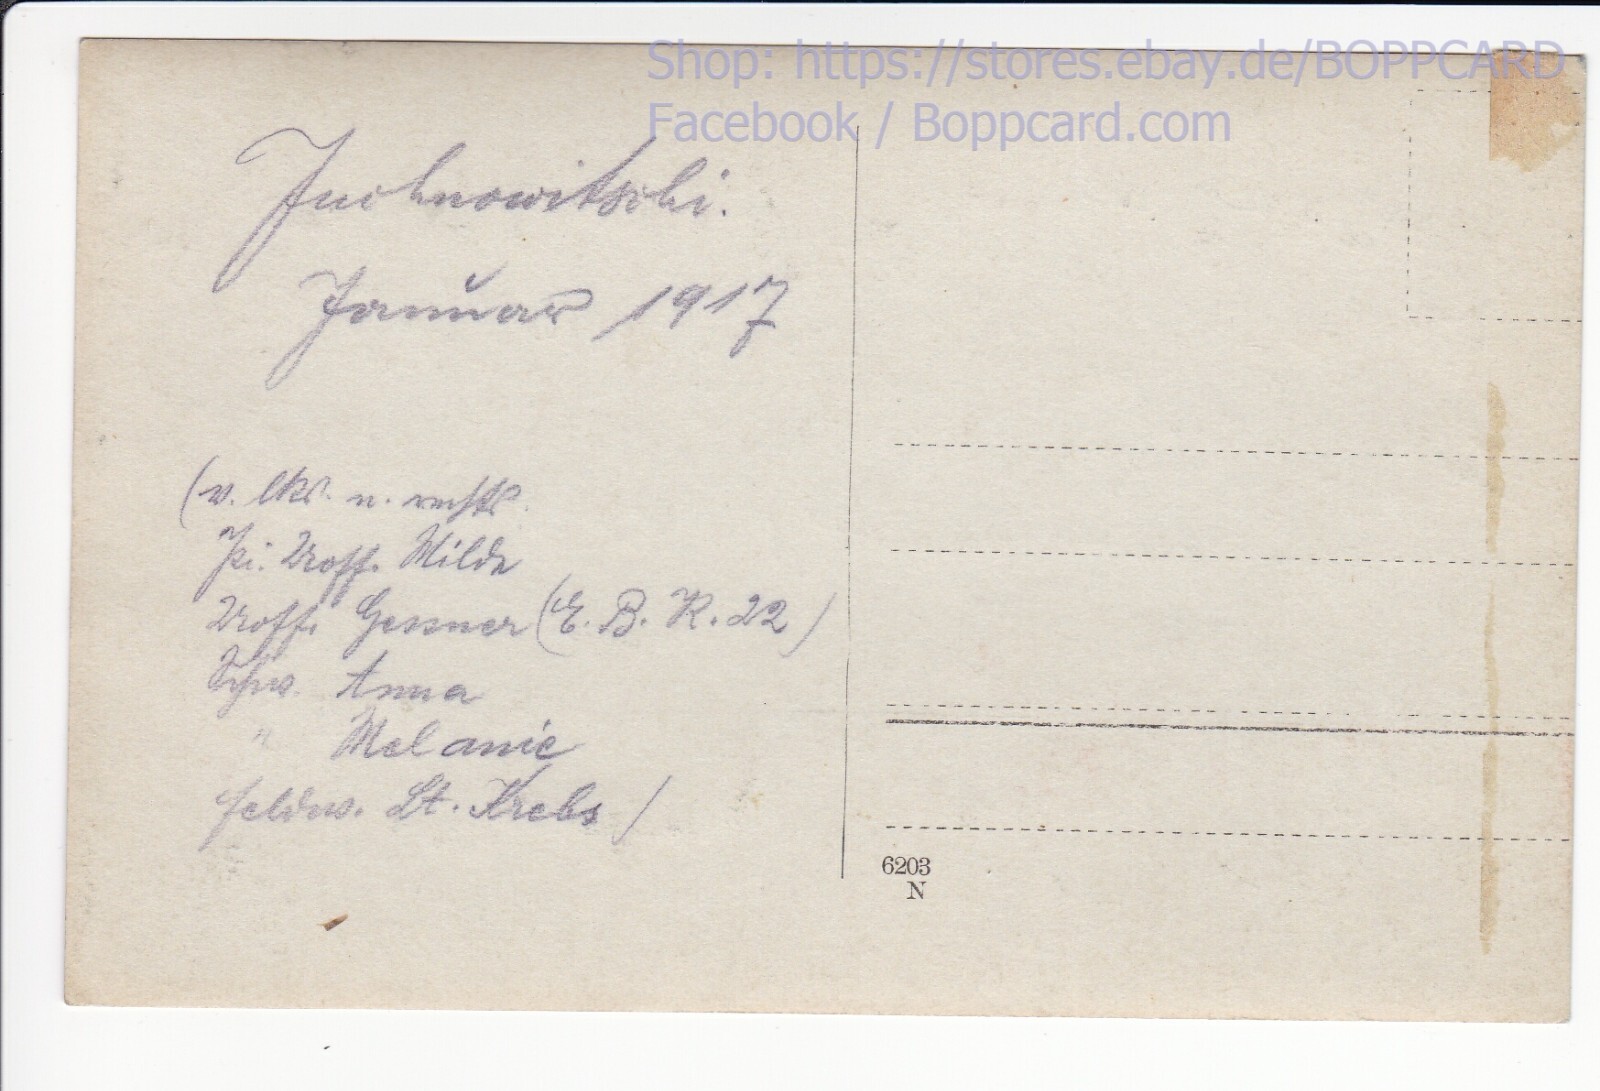 Shop: https://stores.ebay.de/BOPPCARD
Facebook / Boppcard.com
Juchnowitschi.
Januar 1917
(v. lks. n. rechts.
Uoff. Milde
Uoff. Gessner (E. B. K. 22)
Schw. Anna
" Melanie
Feldw. Lt. Krebs)
6203
N